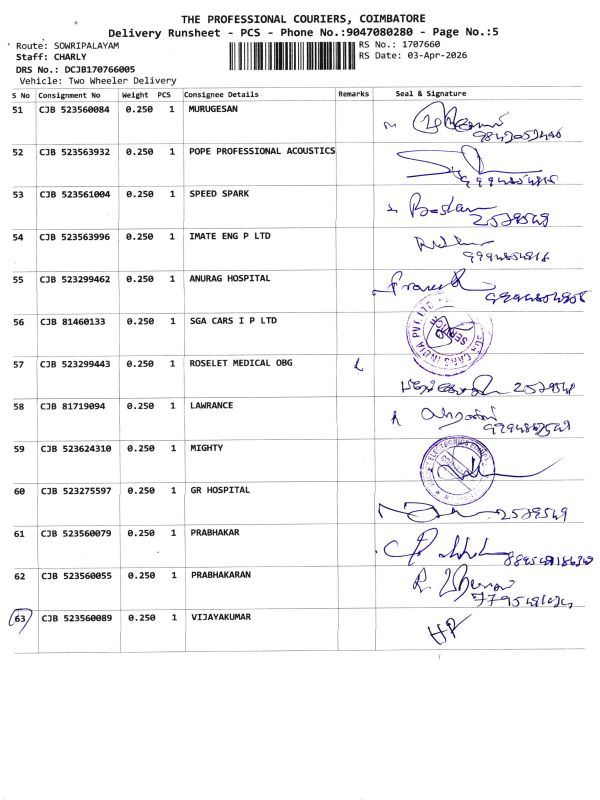 THE PROFESSIONAL COURIERS, COIMBATORE
Delivery Runsheet - PCS - Phone No.:9047080280 - Page No.:5
Route: SOWRIPALAYAM RS No.: 1707660
Staff: CHARLY RS Date: 03-Apr-2026
DRS No.: DCJB170766005
Vehicle: Two Wheeler Delivery
S No Consignment No Weight PCS Consignee Details Remarks Seal & Signature
51 CJB 523560084 0.250 1 MURUGESAN
52 CJB 523563932 0.250 1 POPE PROFESSIONAL ACOUSTICS
53 CJB 523561004 0.250 1 SPEED SPARK
2579549
54 CJB 523563996 0.250 1 IMATE ENG P LTD
55 CJB 523299462 0.250 1 ANURAG HOSPITAL
56 CJB 81460133 0.250 1 SGA CARS I P LTD
SGA CARS INDIA PVT. LTD. SERVICE
57 CJB 523299443 0.250 1 ROSELET MEDICAL OBG
58 CJB 81719094 0.250 1 LAWRANCE
59 CJB 523624310 0.250 1 MIGHTY
60 CJB 523275597 0.250 1 GR HOSPITAL
2579549
61 CJB 523560079 0.250 1 PRABHAKAR
62 CJB 523560055 0.250 1 PRABHAKARAN
63 CJB 523560089 0.250 1 VIJAYAKUMAR